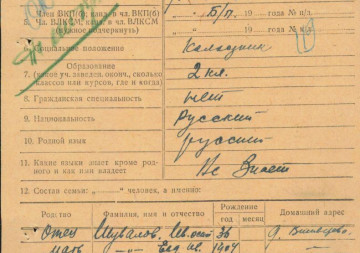 Член ВКП(б), канд. в чл. ВКП(б) б/п. 19 года № п/д.
5. Чл. ВЛКСМ, канд. в чл. ВЛКСМ
(нужное подчеркнуть) 19 года № к/д.
6. Социальное положение Колхозник
Образование
7. (какое уч. заведен. окончил, сколько
классов или курсов, где и когда) 2 кл.
8. Гражданская специальность нет
9. Национальность Русский
10. Родной язык русский
11. Какие языки знает кроме род-
ного и как ими владеет Не Знает
12. Состав семьи: „——“ человек, а именно:
Родство Фамилия, имя и отчество Рождение год месяц Домашний адрес
Отец Шувалов 36 д.
мать —„— 1904